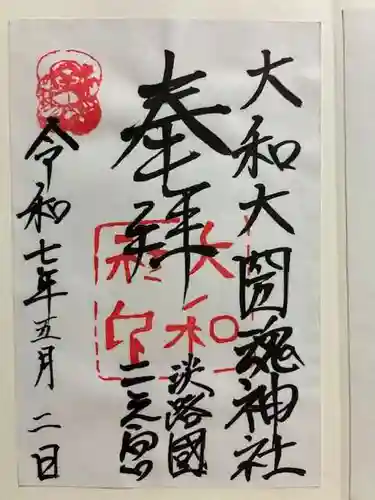 大和大圀魂神社
奉拝
淡路國
二之宮
大和
令和七年五月二日